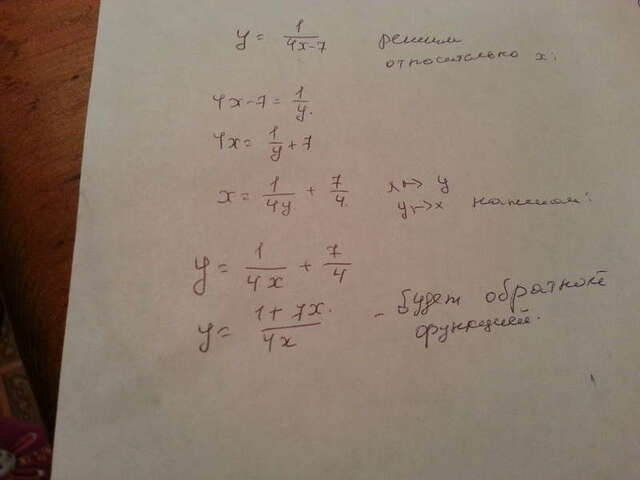 y = 1/(4x-7) решим
относительно x:
4x-7 = 1/y.
4x = 1/y + 7
x = 1/(4y) + 7/4. x↦y
y↦x
y = 1/(4x) + 7/4
y = (1+7x.)/(4x) - будет обратной
функцией.